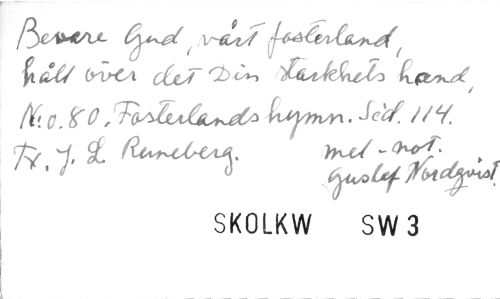 Bevare Gud, vårt fosterland,
håll över det Din starkhets hand,
N:o. 80. Fosterlandshymn. Sid. 114.
Tx. J. L. Runeberg. mel-not.
Gustaf Nordqvist.
SKOLKW SW 3